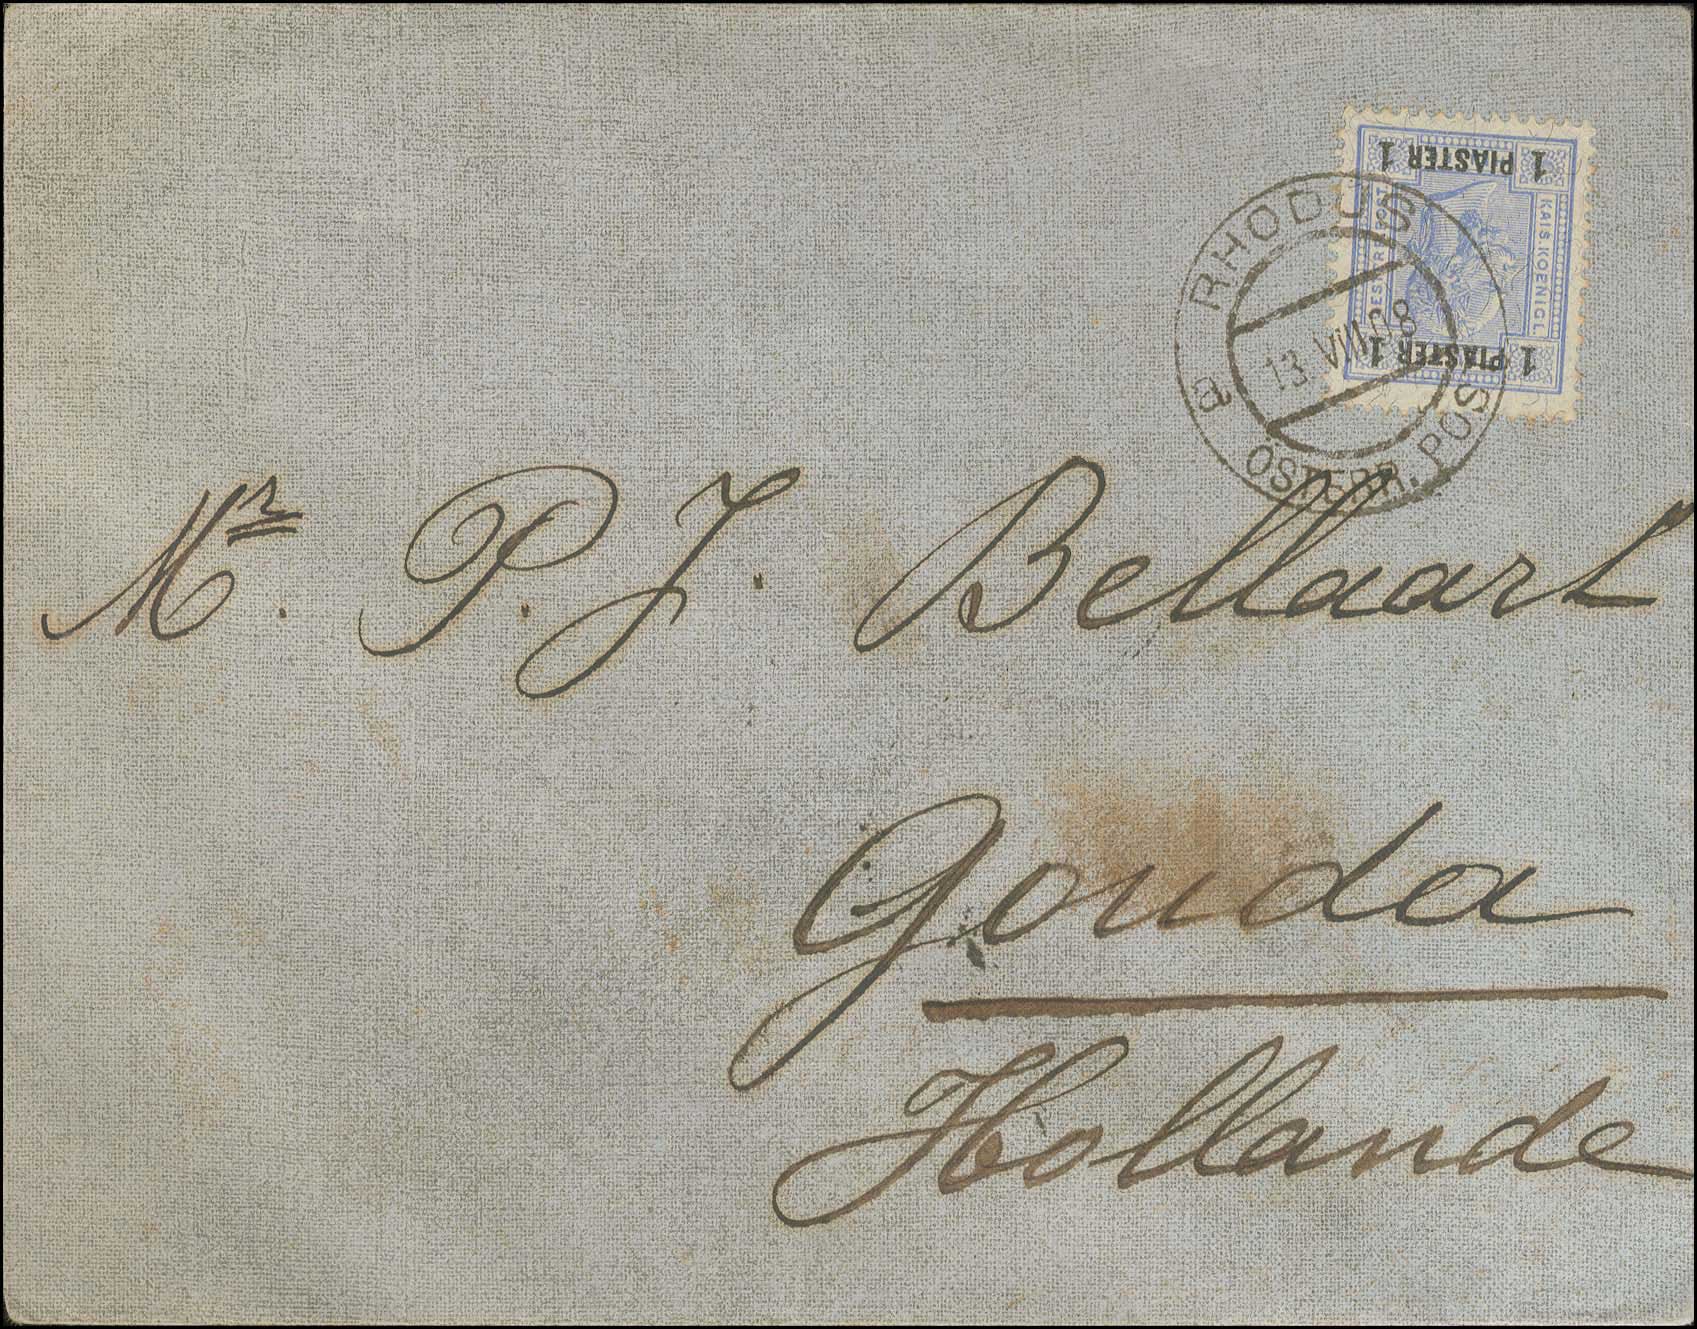 1 PIASTER 1
KAIS. KOENIGL.
OESTERR. POST
1 PIASTER 1
RHODUS
13 VIII 08
a
ÖSTERR. POST
Mr. P. J. Bellaart
Gouda
Hollande